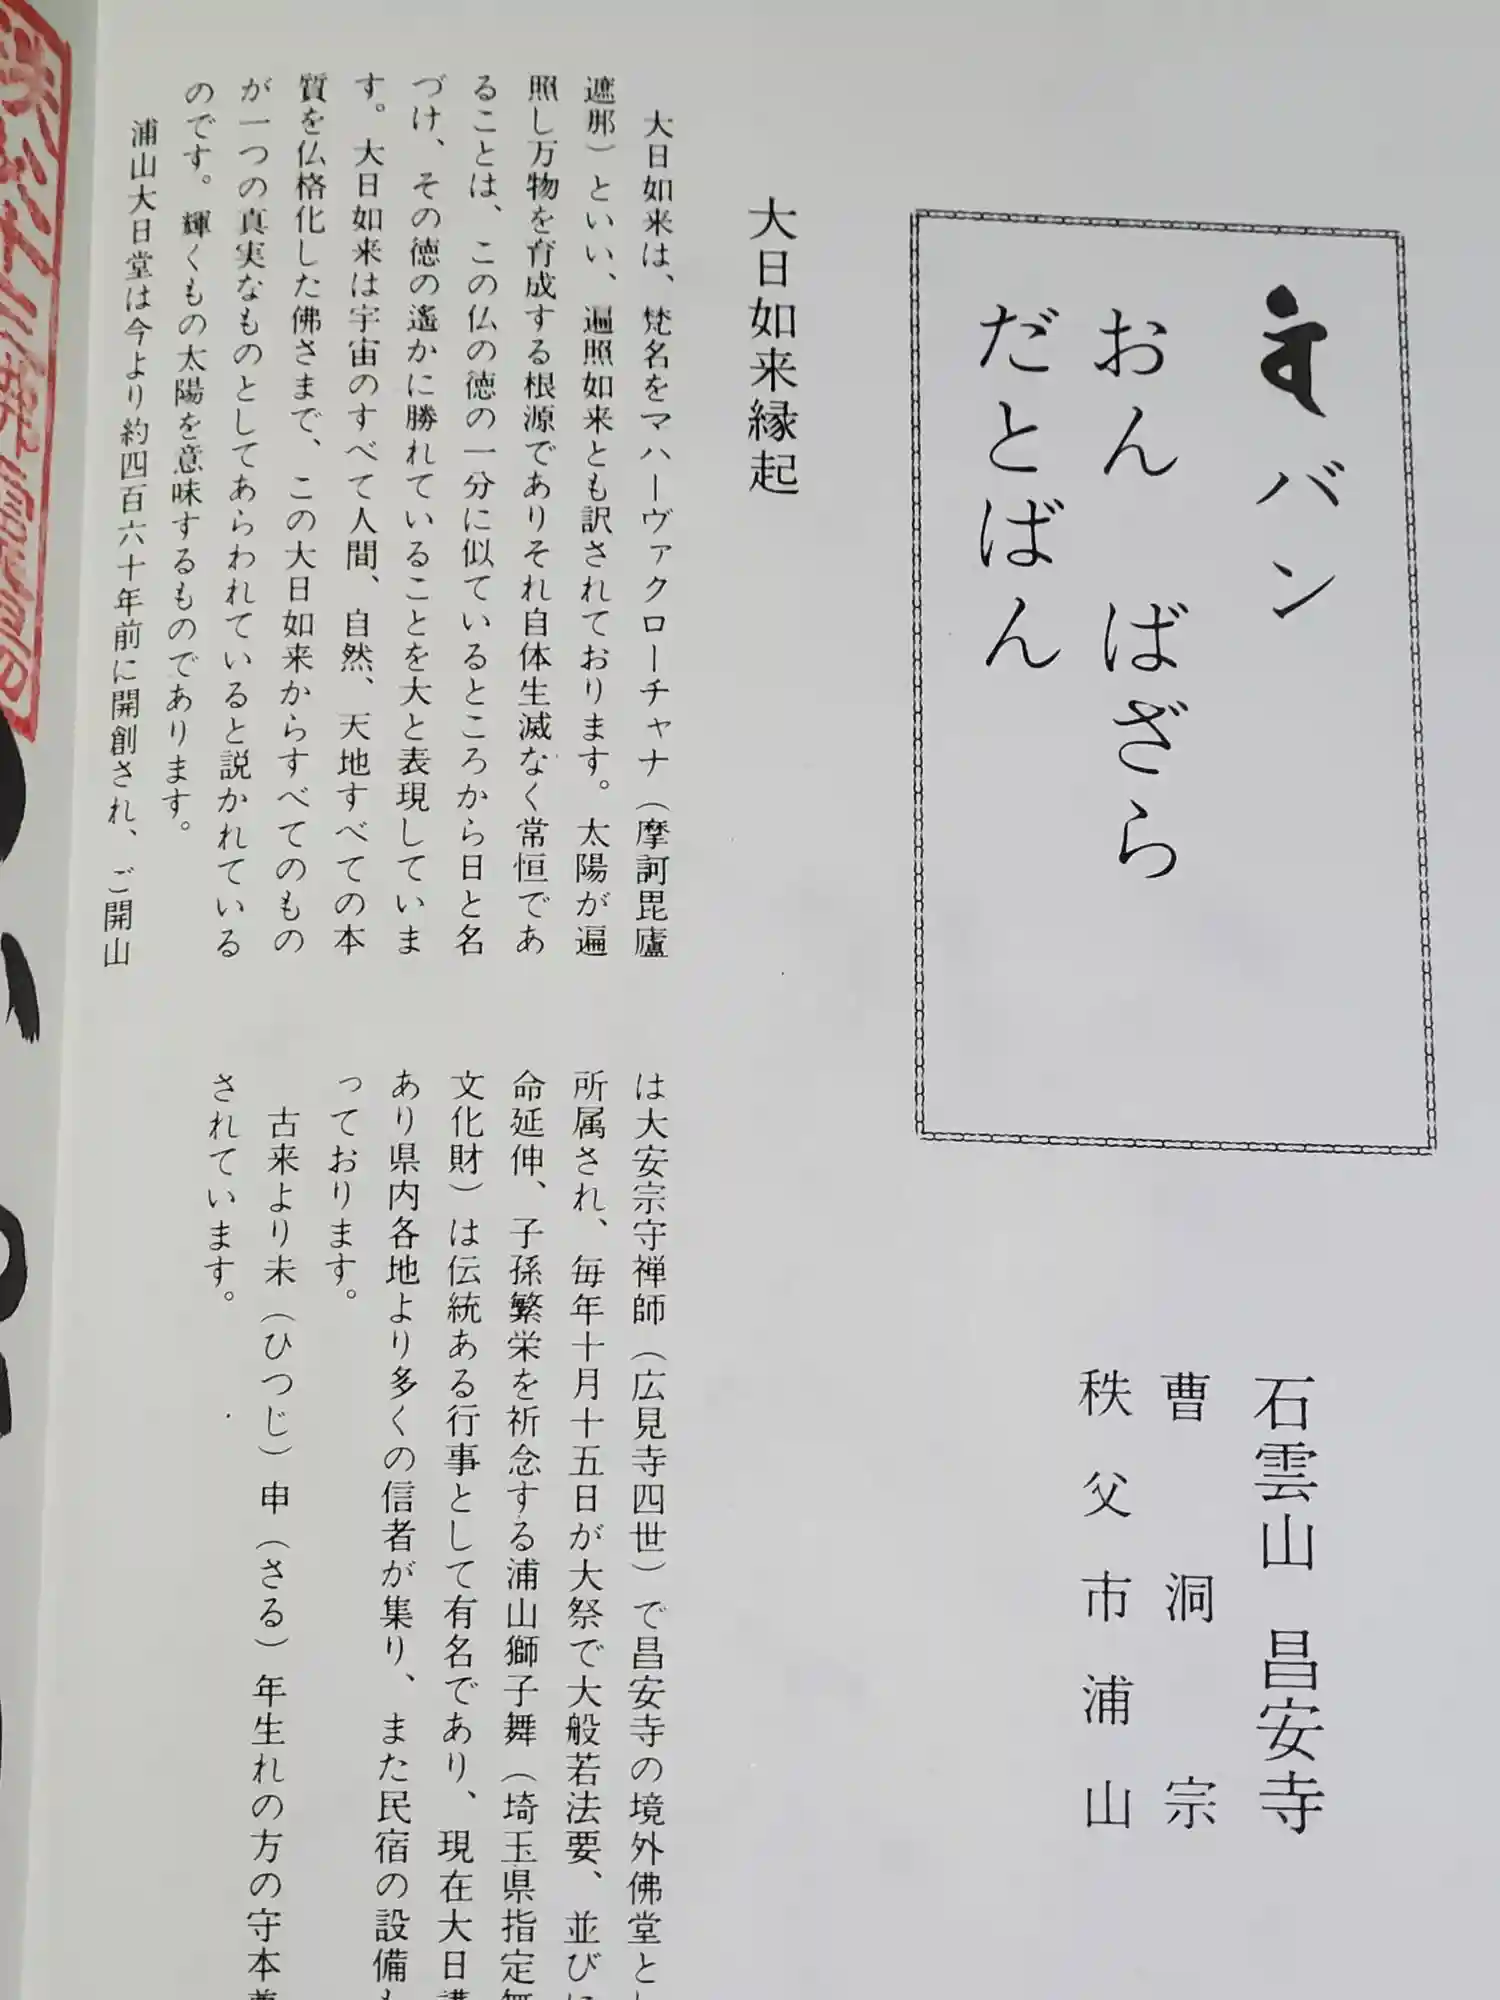 バン
おん　ばざら
だとばん
石雲山　昌安寺
曹洞宗
秩父市浦山
大日如来縁起
大日如来は、梵名をマハーヴァクローチャナ（摩訶毘廬
遮那）といい、遍照如来とも訳されております。太陽が遍
照し万物を育成する根源でありそれ自体生滅なく常恒であ
ることは、この仏の徳の一分に似ているところから日と名
づけ、その徳の遙かに勝れていることを大と表現していま
す。大日如来は宇宙のすべて人間、自然、天地すべての本
質を仏格化した佛さまで、この大日如来からすべてのもの
が一つの真実なものとしてあらわれていると説かれている
のです。輝くもの太陽を意味するものであります。
浦山大日堂は今より約四百六十年前に開創され、ご開山
は大安宗守禅師（広見寺四世）で昌安寺の境外佛堂とし
所属され、毎年十月十五日が大祭で大般若法要、並びに
命延伸、子孫繁栄を祈念する浦山獅子舞（埼玉県指定無
文化財）は伝統ある行事として有名であり、現在大日講
あり県内各地より多くの信者が集り、また民宿の設備も
っております。
古来より未（ひつじ）申（さる）年生れの方の守本尊
されています。